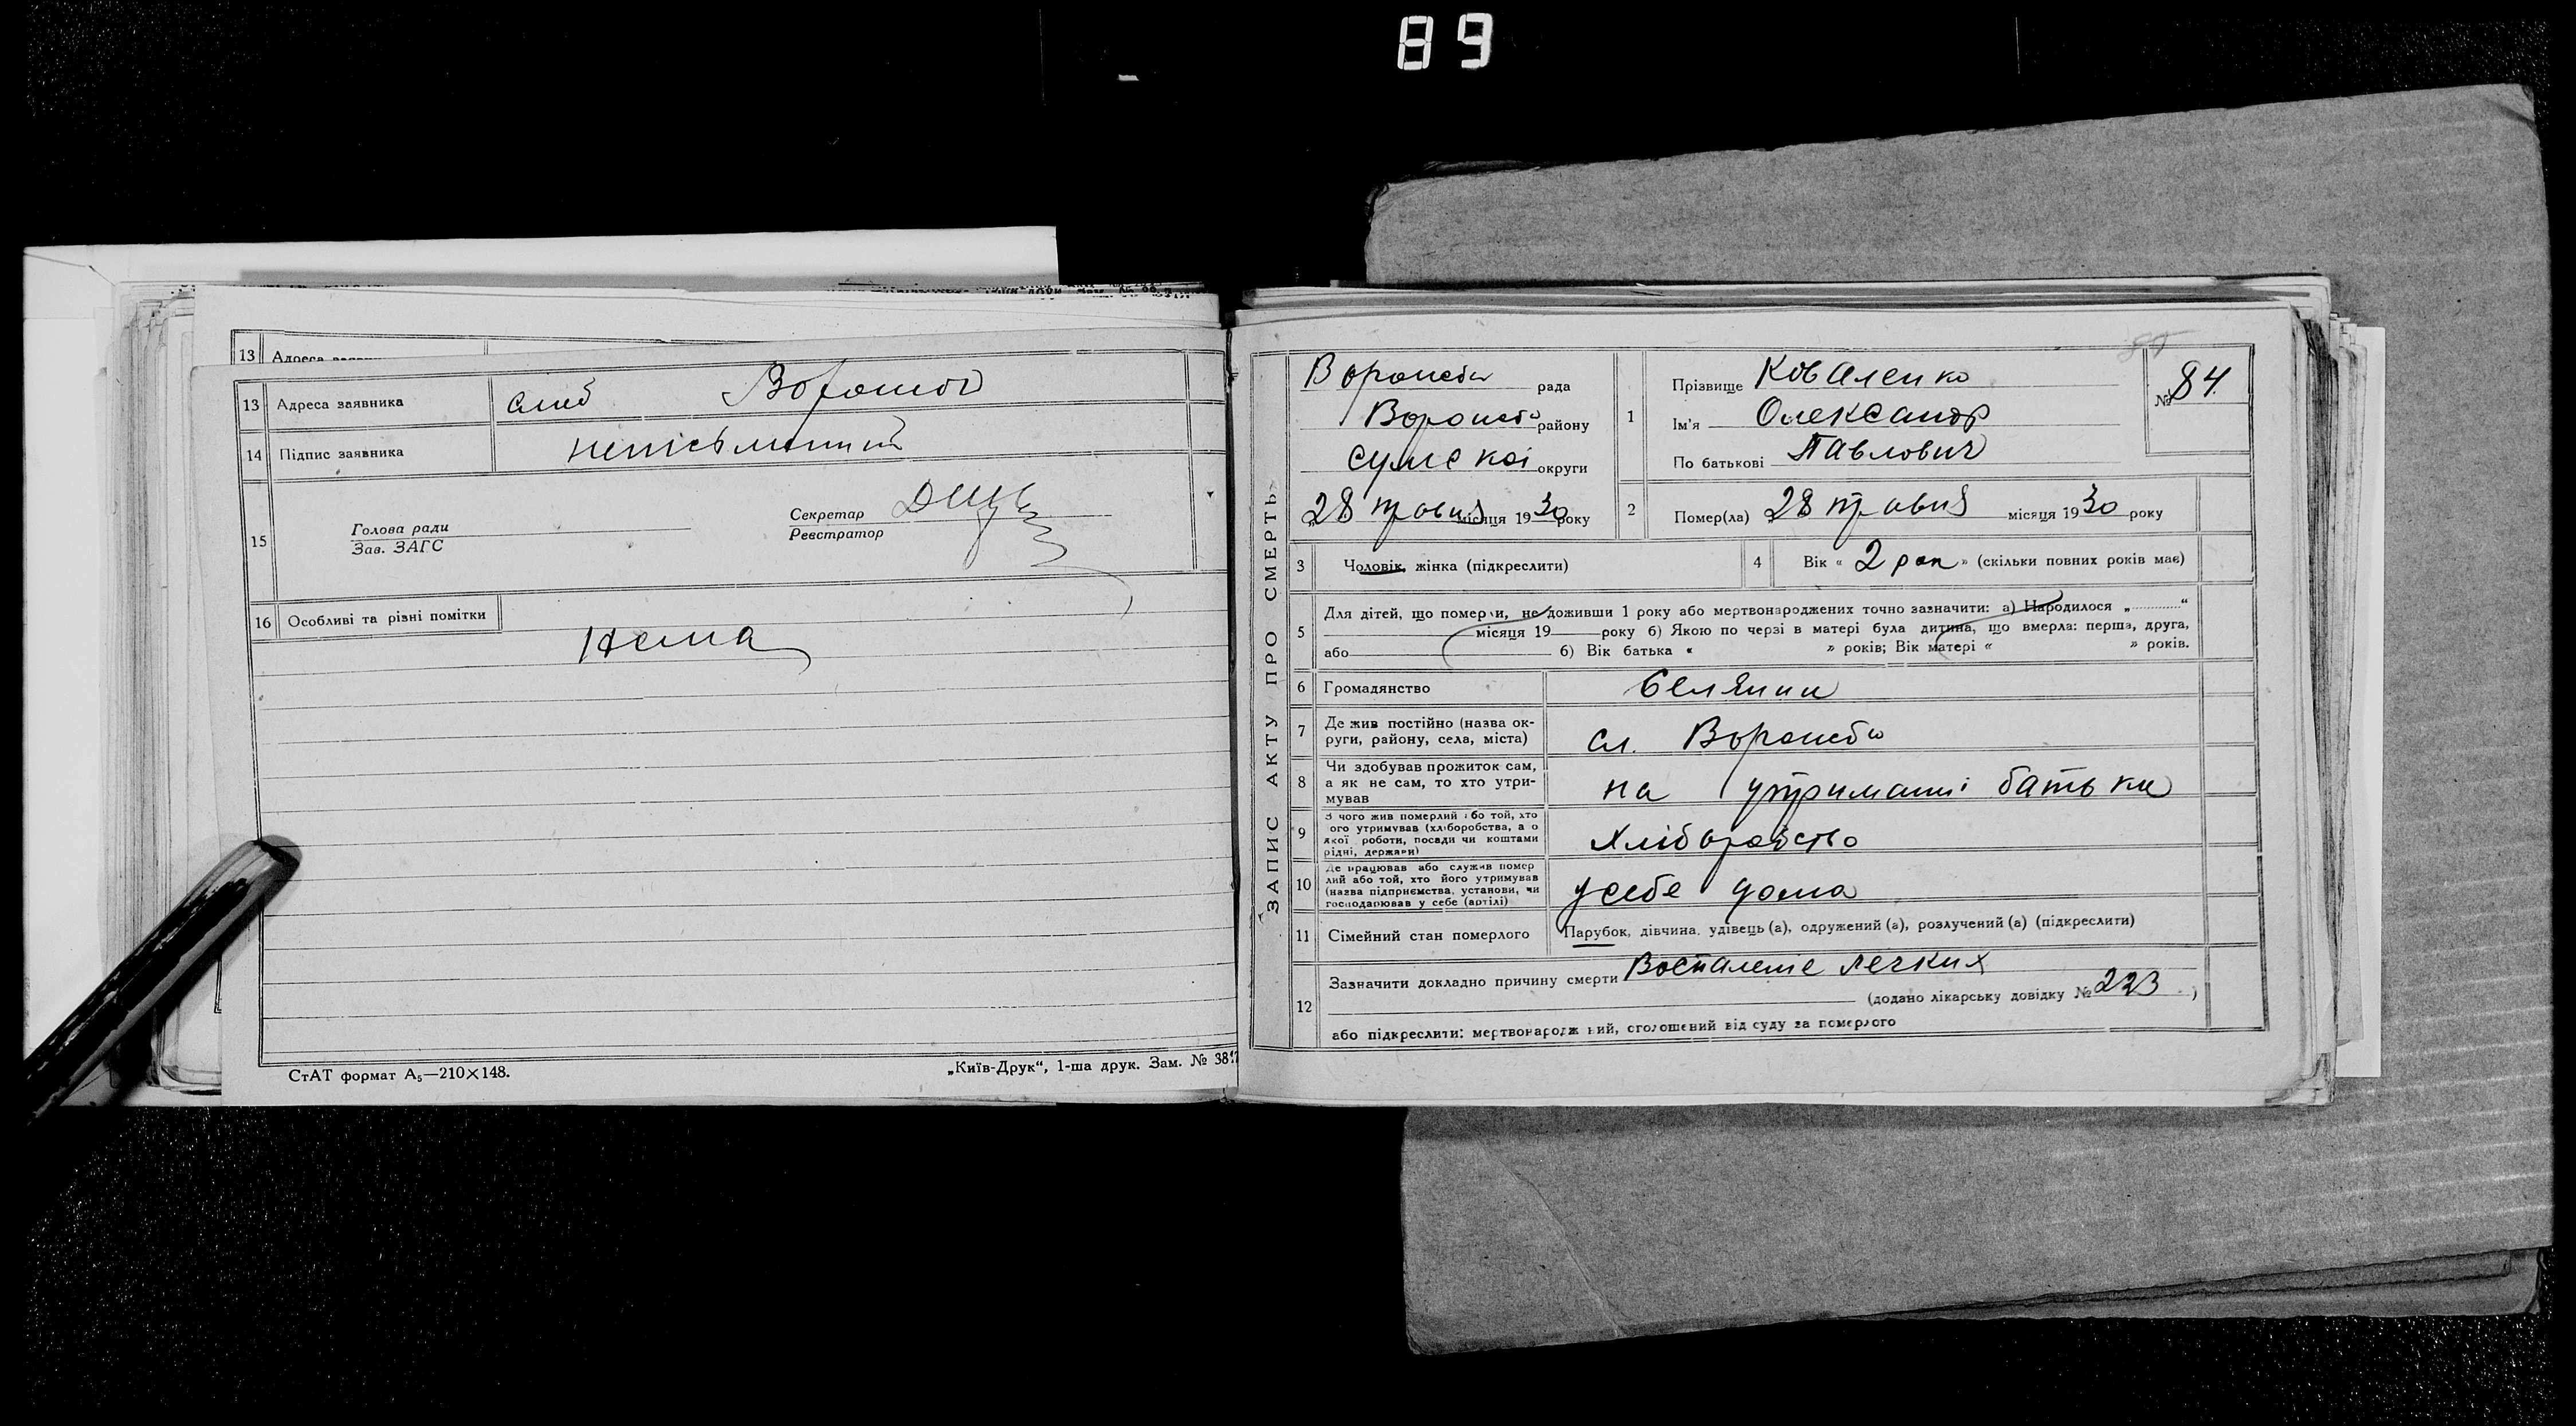 89
13 Адреса
13 Адреса заявника
14 Підпис заявника
15 Голова ради
Зав. ЗАГС
Секретар
Реєстратор
16 Особливі та різні помітки
Нема
СтАТ формат А₅—210×148.
„Київ-Друк“, 1-ша друк. Зам. №
ЗАПИС АКТУ ПРО СМЕРТЬ
рада
району
Сумскоі округи
28 травня місяця 1930 року
1 Прізвище Коваленко
Ім'я Олександр
По батькові Павлович
№ 84.
2 Помер(ла) 28 травня місяця 1930 року
3 Чоловік, жінка (підкреслити)
4 Вік « 2 рок » (скільки повних років має)
5 Для дітей, що померли, не доживши 1 року або мертвонароджених точно зазначити: а) Народилося „ “
місяця 19 року б) Якою по черзі в матері була дитина, що вмерла: перша, друга,
або б) Вік батька « » років; Вік матері « » років.
6 Громадянство Селянин
7 Де жив постійно (назва ок-
руги, району, села, міста)
сл.
8 Чи здобував прожиток сам,
а як не сам, то хто утри-
мував
на утриманні батька
9 З чого жив померлий або той, хто
ого утримував (хліборобства, а о
якої роботи, посади чи коштами
рідні, держави)
Хліборобство
10 Де працював або служив помер
лий або той, хто його утримував
(назва підприємства, установи, чи
господарював у себе (артілі)
у себе дома
11 Сімейний стан померлого
Парубок, дівчина, удівець (а), одружений (а), розлучений (а) (підкреслити)
12 Зазначити докладно причину смерти Воспаление легких
(додано лікарську довідку № 223 )
або підкреслити: мертвонародж ний, оголошений від суду за померлого